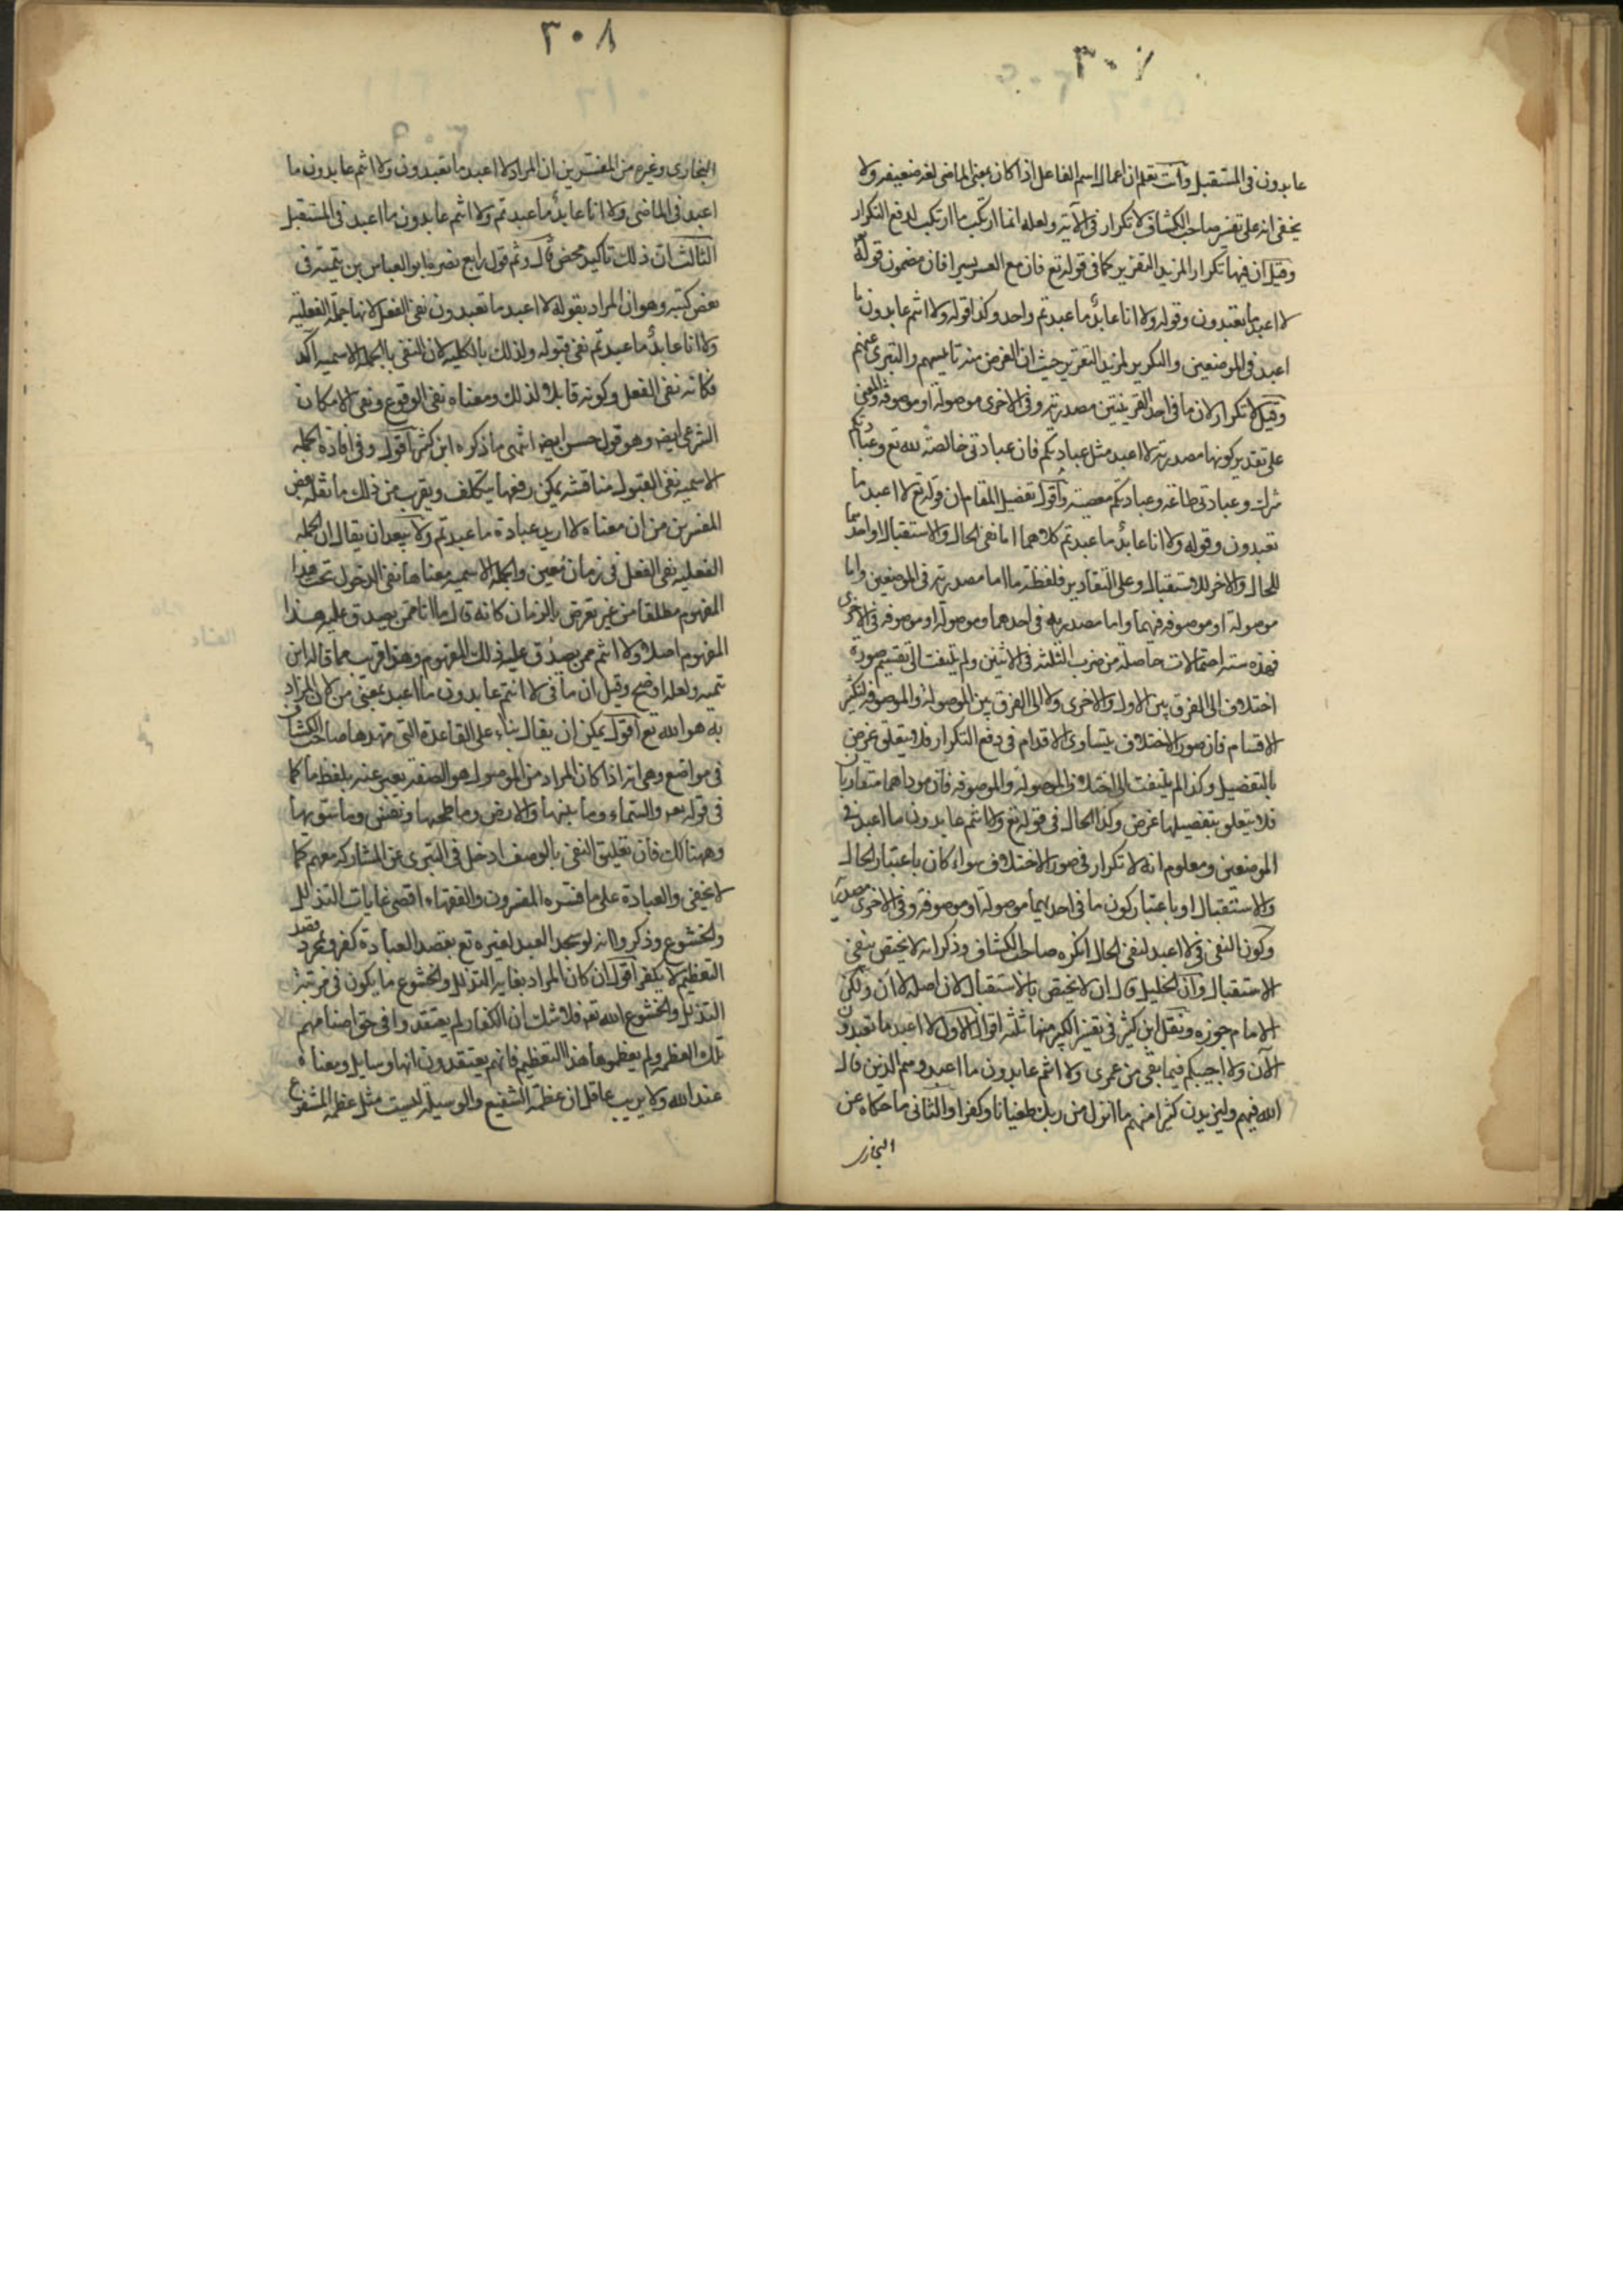 ٣٠٧
عابدون فى المستقبل وانت تعلم ان اعمال اسم الفاعل اذا كان بمعنى الماضى لغة ضعيفة ولا
يخفى انه على تفسير صاحب الكشاف لا تكرار فى الآية ولعله انما ارتكب ما ارتكب لدفع التكرار
وقيل ان فيها تكرارا لمزيد التقرير كما فى قوله تع فان مع العسر يسرا فان مضمون قوله
لا اعبد ما تعبدون وقوله ولا انا عابد ما عبدتم واحد وكذا قوله ولا انتم عابدون ما
اعبد فى الموضعين والتكرير لمزيد التقرير حيث ان الغرض منه تاييسهم والتبرى عنهم
وقيل لا تكرار لان ما فى احد القرينتين مصدرية وفى الاخرى موصولة او موصوفة والمعنى
على تقدير كونها مصدرية لا اعبد مثل عبادتكم فان عبادتى خالصة لله تع وعبادتكم
شرك وعبادتى طاعة وعبادتكم معصية واقول تفصيل المقام ان قوله تع لا اعبد ما
تعبدون وقوله ولا انا عابد ما عبدتم كلاهما اما نفى الحال والاستقبال او احدهما
للحال والاخر للاستقبال وعلى التقادير فلفظة ما اما مصدرية فى الموضعين واما
موصولة او موصوفة فيهما واما مصدرية فى احدهما وموصولة او موصوفة فى الاخرى
فهذه ستة احتمالات حاصلة من ضرب الثلثة فى الاثنين ولم يلتفت الى تقسيم صورة
اختلاف الى الفرق بين الاول والاخرى ولا الى الفرق بين الموصولة والموصوفة لتكثر
الاقسام فان صور الاختلاف يتساوى الاقدام فى دفع التكرار فلا يتعلق غرض
بالتفصيل وكذا لم يلتفت الى اختلاف الموصولة والموصوفة فان موداهما متقاربان
فلا يتعلق بتفصيلها غرض وكذا الحال فى قوله تع ولا انتم عابدون ما اعبد فى
الموضعين ومعلوم انه لا تكرار فى صور الاختلاف سواء كان باعتبار الحال
والاستقبال او باعتبار كون ما فى احديهما موصولة او موصوفة وفى الاخرى مصدرية
وكون النفى فى لا اعبد لنفى الحال انكره صاحب الكشاف وذكر انه لا يختص بنفى
الاستقبال وان الخليل قال ان لا يختص بالاستقبال لان اصله لا ان ولكن
الامام جوزه ونقل ابن كثير فى تفسير الكبير منها ثلثة اقوال الاول لا اعبد ما تعبدون
الآن ولا اجيبكم فيما بقى من عمرى ولا انتم عابدون ما اعبد وهم الذين قال
الله فيهم وليزيدن كثيرا منهم ما انزل من ربك طغيانا وكفرا والثانى ما حكاه عن
البخارى
٣٠٨
البخارى وغيره من المفسرين ان المراد لا اعبد ما تعبدون ولا انتم عابدون ما
اعبد فى الماضى ولا انا عابد ما عبدتم ولا انتم عابدون ما اعبد فى المستقبل
الثالث ان ذلك تاكيد محض قال وثم قول رابع نصره ابو العباس بن تيمية فى
بعض كتبه وهو ان المراد بقوله لا اعبد ما تعبدون نفى الفعل لانها جملة الفعلية
ولا انا عابد ما عبدتم نفى قبوله ولذلك بالكلية لان النفى بالجملة الاسمية آكد
فكانه نفى الفعل وكونه قابلا لذلك ومعناه نفى الوقوع ونفى الامكان
الشرعى ايضا وهو قول حسن ايضا انتهى ما ذكره ابن كثير اقول وفى افادة الجملة
الاسمية نفى القبول مناقشة يمكن رفعها بتكلف ويقرب من ذلك ما نقله بعض
المفسرين من ان معناه لا اريد عبادة ما عبدتم ولا يبعد ان يقال ان الجملة
الفعلية نفى الفعل فى زمان معين والجملة الاسمية معناها نفى الدخول تحت هذا
المفهوم مطلقا من غير تعرض بالزمان كانه قال ما انا ممن يصدق عليه هذا
المفهوم اصلا ولا انتم ممن يصدق عليه ذلك المفهوم وهو اقرب مما قاله ابن
تيمية ولعله اوضح وقيل ان ما فى لا انتم عابدون ما اعبد بمعنى من لان المراد
به هو الله تع اقول يمكن ان يقال بناء على القاعدة التى مهدها صاحب الكشاف
فى مواضع وهى انه اذا كان المراد من الموصول هو الصفة يعبر عنه بلفظ ما كما
فى قوله تع والسماء وما بنيها والارض وما طحيها ونفس وما سويها
وههنا كك فان تعليق النفى بالوصف ادخل فى التبرى عن المشاركة معهم كما
لا يخفى والعبادة على ما فسره المفسرون والفقهاء اقصى غايات التذلل
والخشوع وذكروا انه لو سجد العبد لغيره تع بقصد العبادة كفر وبمجرد قصد
التعظيم لا يكفر اقول ان كان المراد بغاية التذلل والخشوع ما يكون فى مرتبة
التذلل والخشوع لله تع فلا شك ان الكفار لم يعتقدوا فى حق اصنامهم
تلك العظمة ولم يعظموها هذا التعظيم فانهم يعتقدون انها وسايل وشفعاء
عند الله ولا يريب عاقل ان عظمة الشفيع والوسيلة ليست مثل عظمة المشفوع